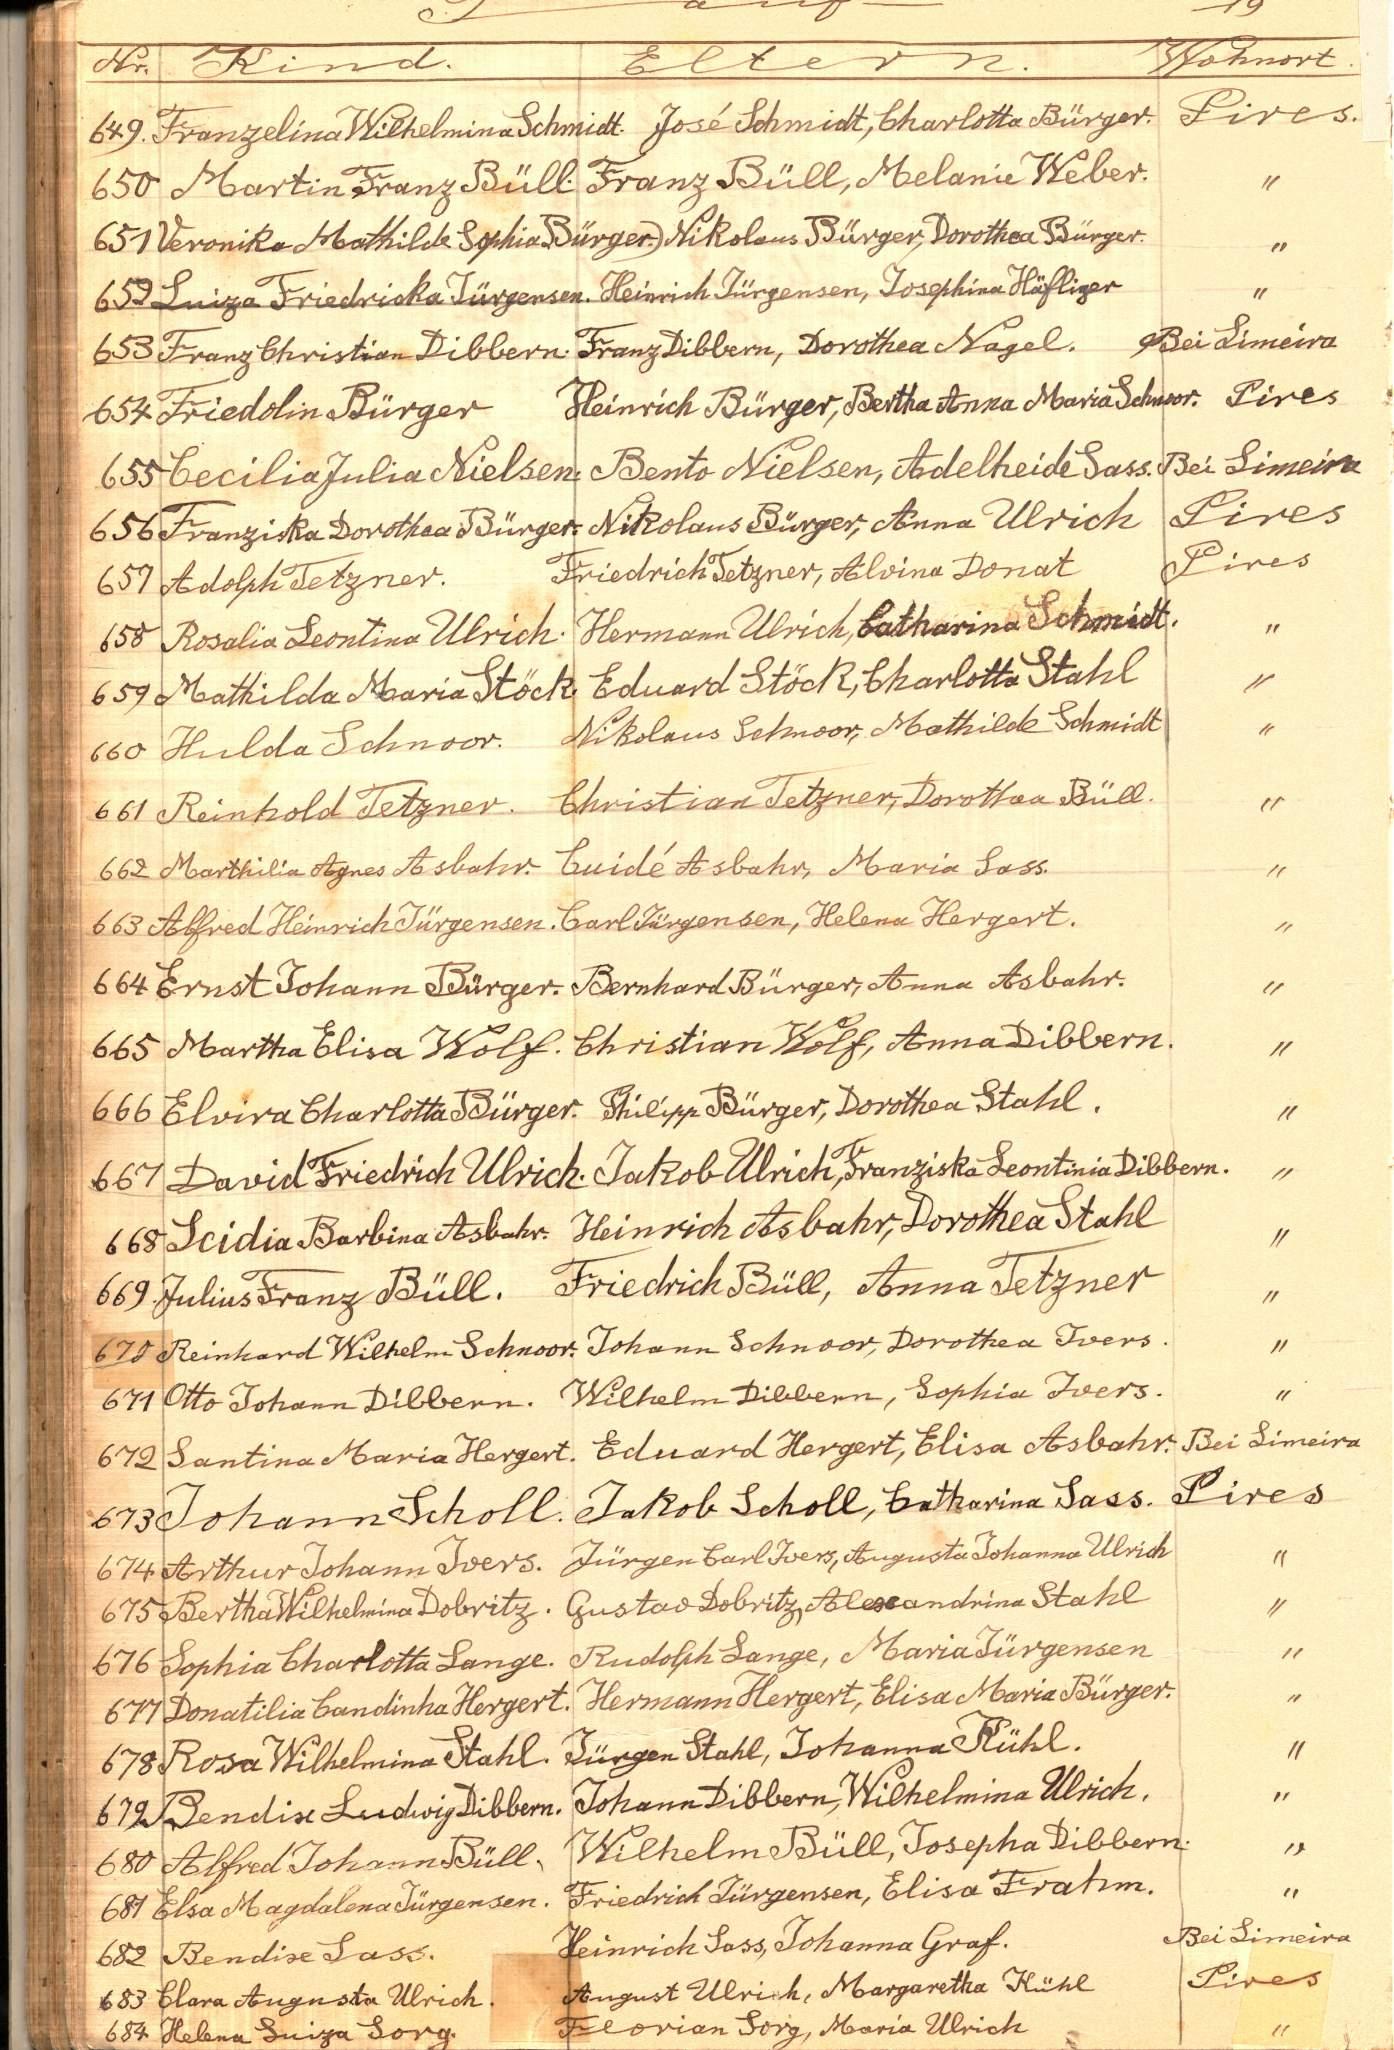 Tauf 19
Nr. Kind. Eltern. Wohnort.
649. Franzelina Wilhelmina Schmidt. José Schmidt, Charlotta Bürger. Pires.
650 Martin Franz Büll. Franz Büll, Melanie Weber. "
651 Veronika Mathilde Sophia Bürger.) Nikolaus Bürger, Dorothea Bürger. "
652 Luiza Friedricka Jürgensen. Heinrich Jürgensen, Josephina Häfliger "
653 Franz Christian Dibbern. Franz Dibbern, Dorothea Nagel. Bei Limeira
654 Friedolin Bürger Heinrich Bürger, Bertha Anna Maria Schnoor. Pires
655 Cecilia Julia Nielsen. Bento Nielsen, Adelheide Sass. Bei Limeira
656 Franziska Dorothea Bürger. Nikolaus Bürger, Anna Ulrich Pires
657 Adolph Tetzner. Friedrich Tetzner, Alvina Donat Pires
658 Rosalia Leontina Ulrich. Hermann Ulrich, Catharina Schmidt. "
659 Mathilda Maria Stöck. Eduard Stöck, Charlotta Stahl "
660 Hulda Schnoor. Nikolaus Schnoor, Mathilde Schmidt "
661 Reinhold Tetzner. Christian Tetzner, Dorothea Büll. "
662 Marthilia Agnes Asbahr. Cuidé Asbahr, Maria Sass. "
663 Alfred Heinrich Jürgensen. Carl Jürgensen, Helena Hergert. "
664 Ernst Johann Bürger. Bernhard Bürger, Anna Asbahr. "
665 Martha Elisa Wolf. Christian Wolf, Anna Dibbern. "
666 Elvira Charlotta Bürger. Philipp Bürger, Dorothea Stahl. "
667 David Friedrich Ulrich. Jakob Ulrich, Franziska Leontinia Dibbern. "
668 Scidia Barbina Asbahr. Heinrich Asbahr, Dorothea Stahl "
669. Julius Franz Büll. Friedrich Büll, Anna Tetzner "
670 Reinhard Wilhelm Schnoor. Johann Schnoor, Dorothea Ivers. "
671 Otto Johann Dibbern. Wilhelm Dibbern, Sophia Ivers. "
672 Santina Maria Hergert. Eduard Hergert, Elisa Asbahr. Bei Limeira
673 Johann Scholl. Jakob Scholl, Catharina Sass. Pires
674 Arthur Johann Ivers. Jürgen Carl Ivers, Augusta Johanna Ulrich "
675 Bertha Wilhelmina Dobritz. Gustav Dobritz, Alexandrina Stahl "
676 Sophia Charlotta Lange. Rudolph Lange, Maria Jürgensen "
677 Donatilia Candinha Hergert. Hermann Hergert, Elisa Maria Bürger. "
678 Rosa Wilhelmina Stahl. Jürgen Stahl, Johanna Kühl. "
679 Bendix Ludwig Dibbern. Johann Dibbern, Wilhelmina Ulrich. "
680 Alfred Johann Büll. Wilhelm Büll, Josepha Dibbern. "
681 Elsa Magdalena Jürgensen. Friedrich Jürgensen, Elisa Frahm. "
682 Bendix Sass. Heinrich Sass, Johanna Graf. Bei Limeira
683 Clara Augusta Ulrich. August Ulrich, Margaretha Kühl Pires
684 Helena Luiza Sorg. Florian Sorg, Maria Ulrich "